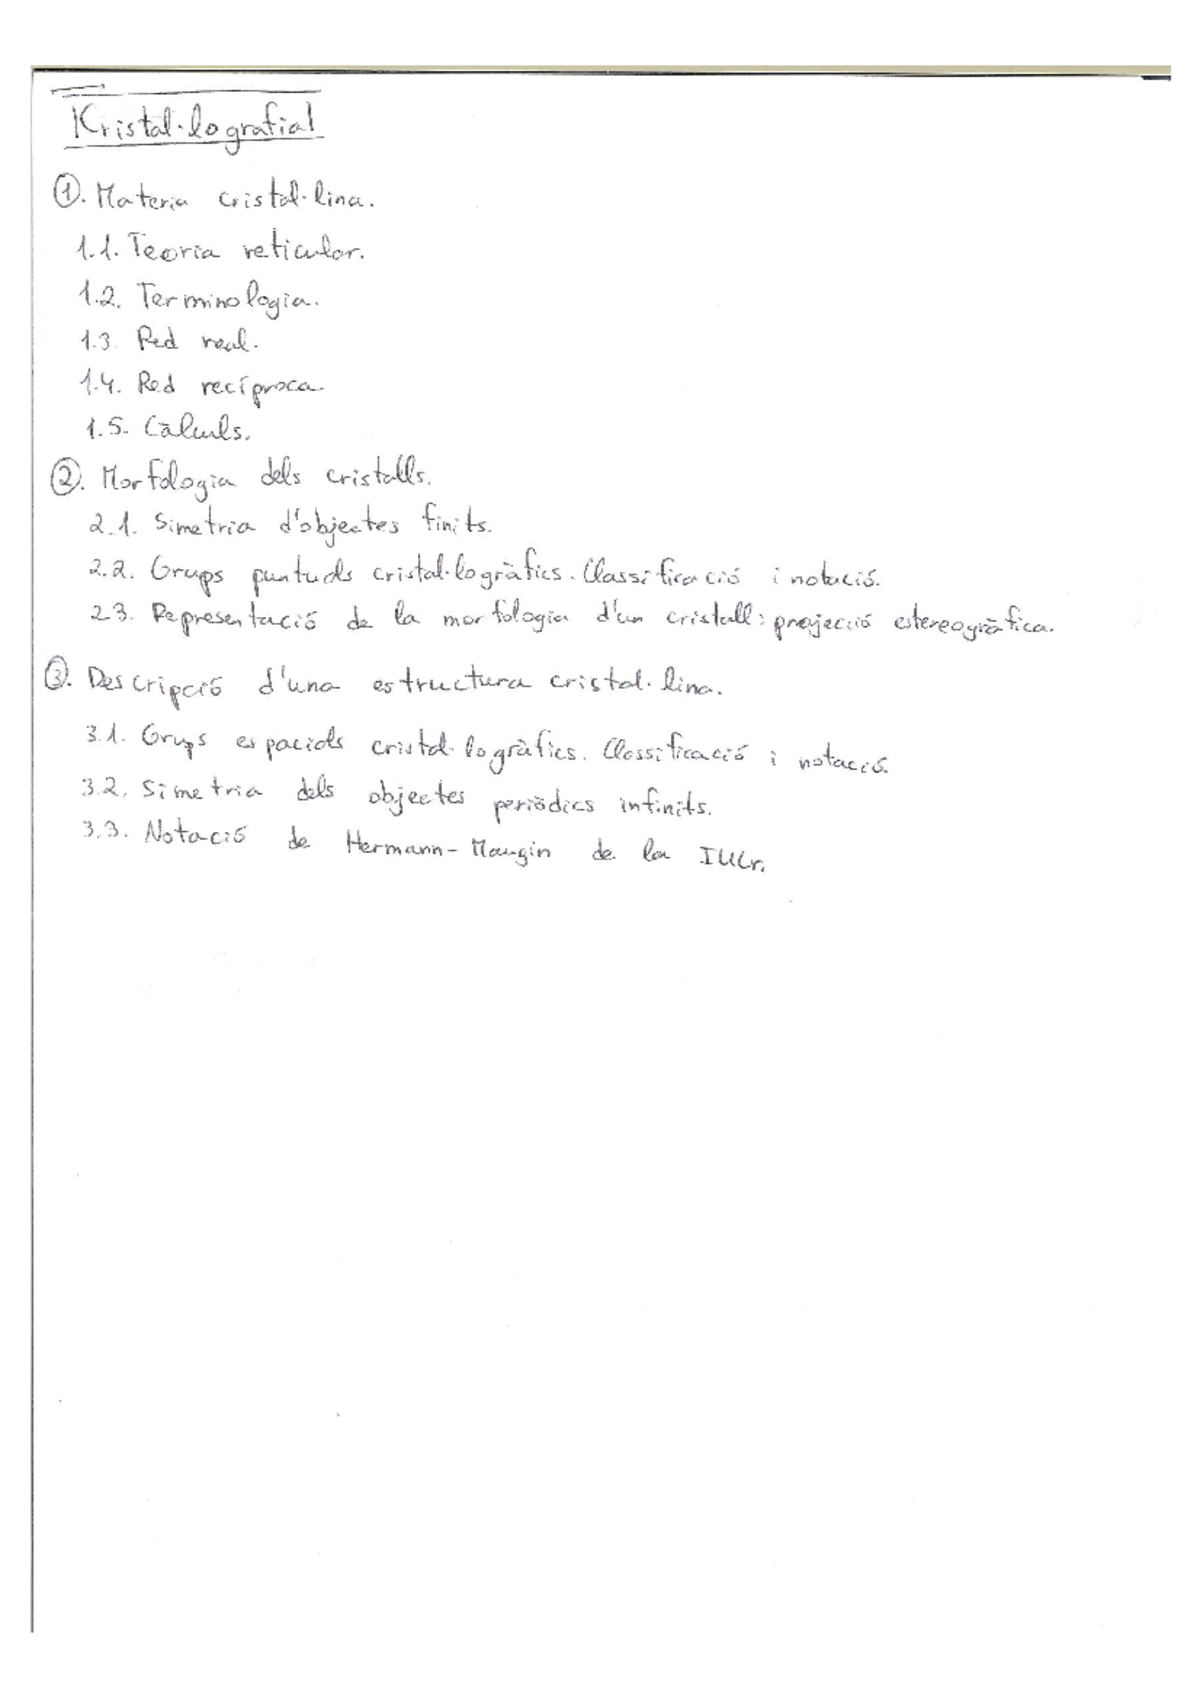 Kristal·lografia!
①. Materia cristal·lina.
1.1. Teoria reticular.
1.2. Terminologia.
1.3. Red real.
1.4. Red recíproca.
1.5. Càlculs.
②. Morfologia dels cristalls.
2.1. Simetria d'objectes finits.
2.2. Grups puntuals cristal·logràfics. Classificació i notació.
2.3. Representació de la morfologia d'un cristall: projecció estereogràfica.
③. Descripció d'una estructura cristal·lina.
3.1. Grups espacials cristal·logràfics. Classificació i notació.
3.2. Simetria dels objectes periòdics infinits.
3.3. Notació de Hermann-Maugin de la IUCr.